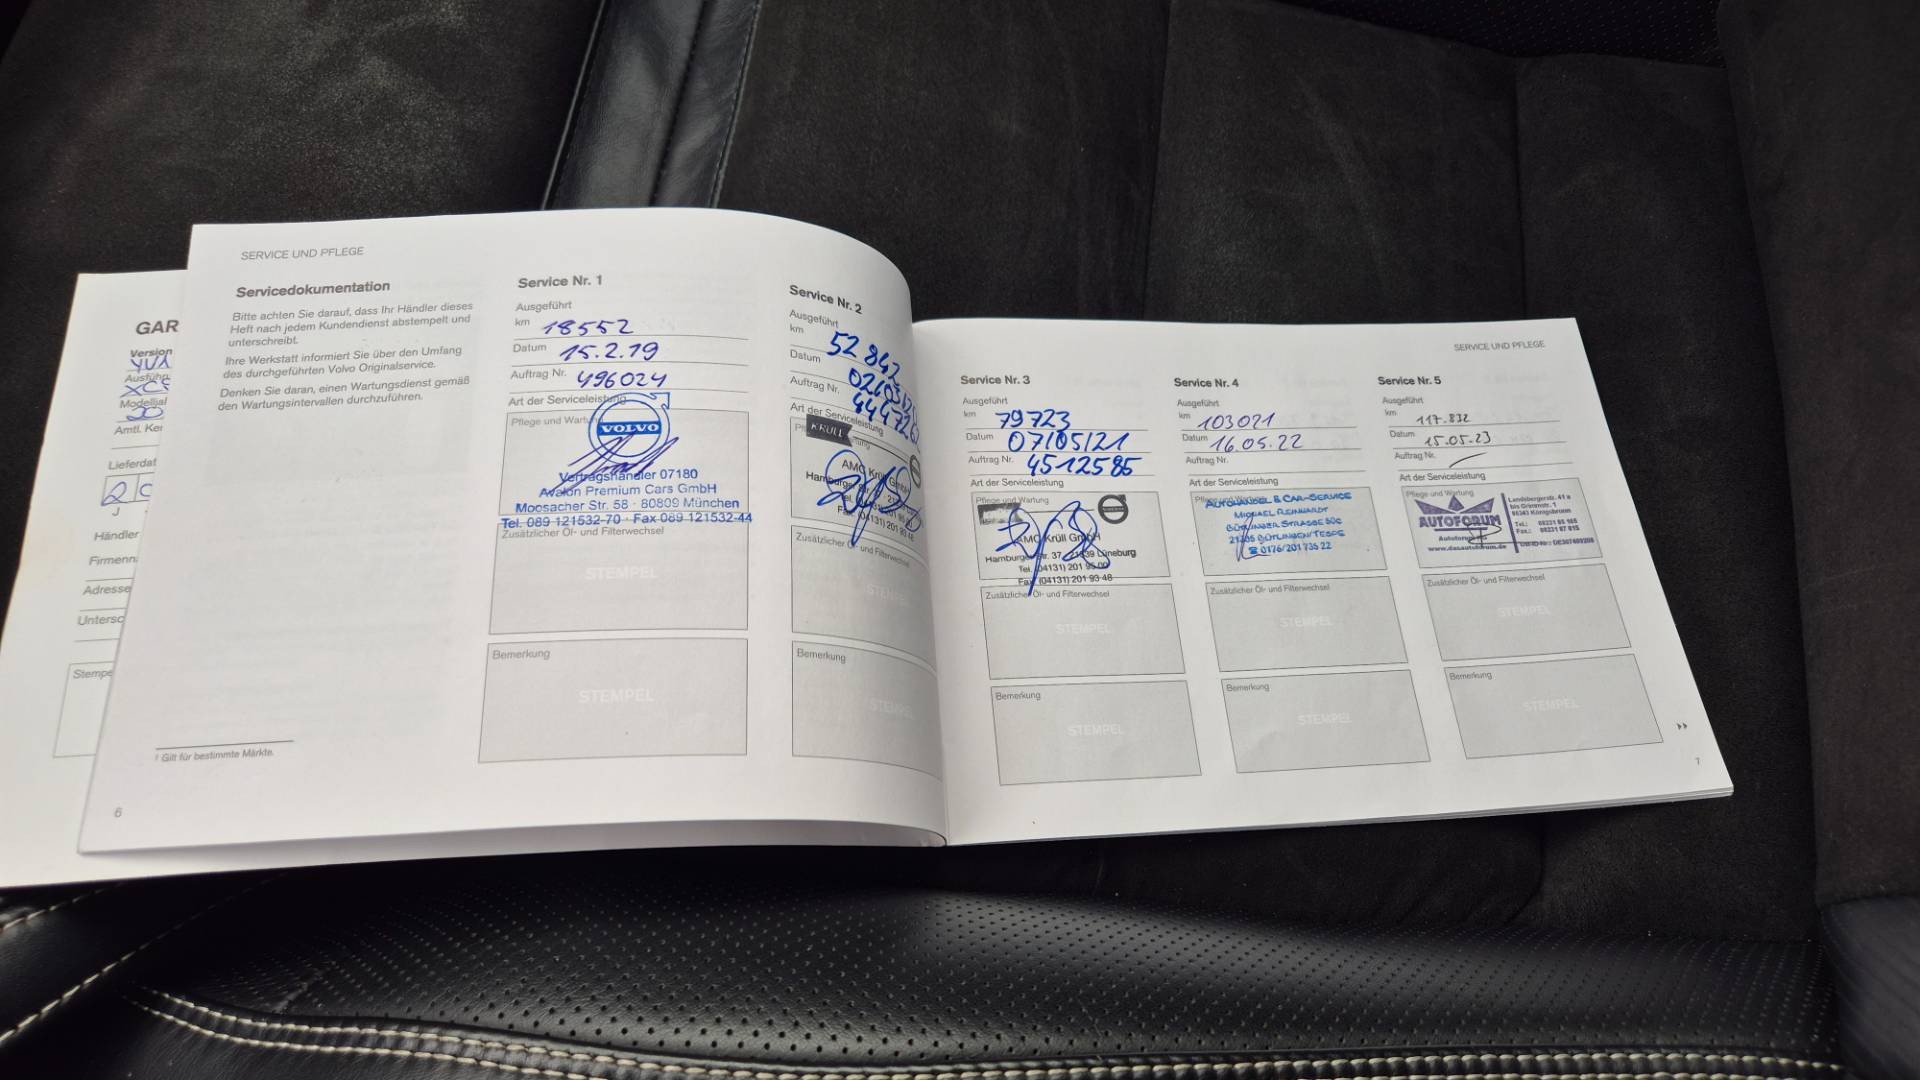 SERVICE UND PFLEGE
Servicedokumentation
Bitte achten Sie darauf, dass Ihr Händler dieses
Heft nach jedem Kundendienst abstempelt und
unterschreibt.
Ihre Werkstatt informiert Sie über den Umfang
des durchgeführten Volvo Originalservice.
Denken Sie daran, einen Wartungsdienst gemäß
den Wartungsintervallen durchzuführen.
1 Gilt für bestimmte Märkte.
6
GAR
Version
YV1
Ausführ
Modelljah
Amtl. Ken
Lieferdat
J
Händler
Firmenn
Adresse
Untersc
Stempe
Service Nr. 1
Ausgeführt
km 18552
Datum 15.2.19
Auftrag Nr. 496024
Art der Serviceleistung
Pflege und Wartung
VOLVO
Vertragshändler 07180
Avalon Premium Cars GmbH
Moosacher Str. 58 · 80809 München
Tel. 089 121532-70 · Fax 089 121532-44
Zusätzlicher Öl- und Filterwechsel
STEMPEL
Bemerkung
STEMPEL
Service Nr. 2
Ausgeführt
km 52842
Datum
Auftrag Nr.
Art der Serviceleistung
KRÜLL
AMC Krüll GmbH
Zusätzlicher Öl- und Filterwechsel
STEMPEL
Bemerkung
STEMPEL
SERVICE UND PFLEGE
Service Nr. 3
Ausgeführt
km 79723
Datum 07/05/21
Auftrag Nr. 4512585
Art der Serviceleistung
Pflege und Wartung
AMC Krüll GmbH
Hamburger Str. 37 · 21339 Lüneburg
Tel. (04131) 201 93 00
Fax (04131) 201 93 48
Zusätzlicher Öl- und Filterwechsel
STEMPEL
Bemerkung
STEMPEL
Service Nr. 4
Ausgeführt
km 103021
Datum 16.05.22
Auftrag Nr.
Art der Serviceleistung
Pflege und Wartung
AUTOHANDEL & CAR-SERVICE
MICHAEL REINHARDT
BÜTLINGER STRASSE 50C
21395 BÜTLINGEN/TESPE
☎ 0176/201 735 22
Zusätzlicher Öl- und Filterwechsel
STEMPEL
Bemerkung
STEMPEL
Service Nr. 5
Ausgeführt
km 117.832
Datum 15.05.23
Auftrag Nr.
Art der Serviceleistung
Pflege und Wartung
AUTOFORUM
www.dasautoforum.de
Landsbergerstr. 41 a
bis Grimmstr. 1
86343 Königsbrunn
Tel.:
Fax.:
Zusätzlicher Öl- und Filterwechsel
STEMPEL
Bemerkung
STEMPEL
7